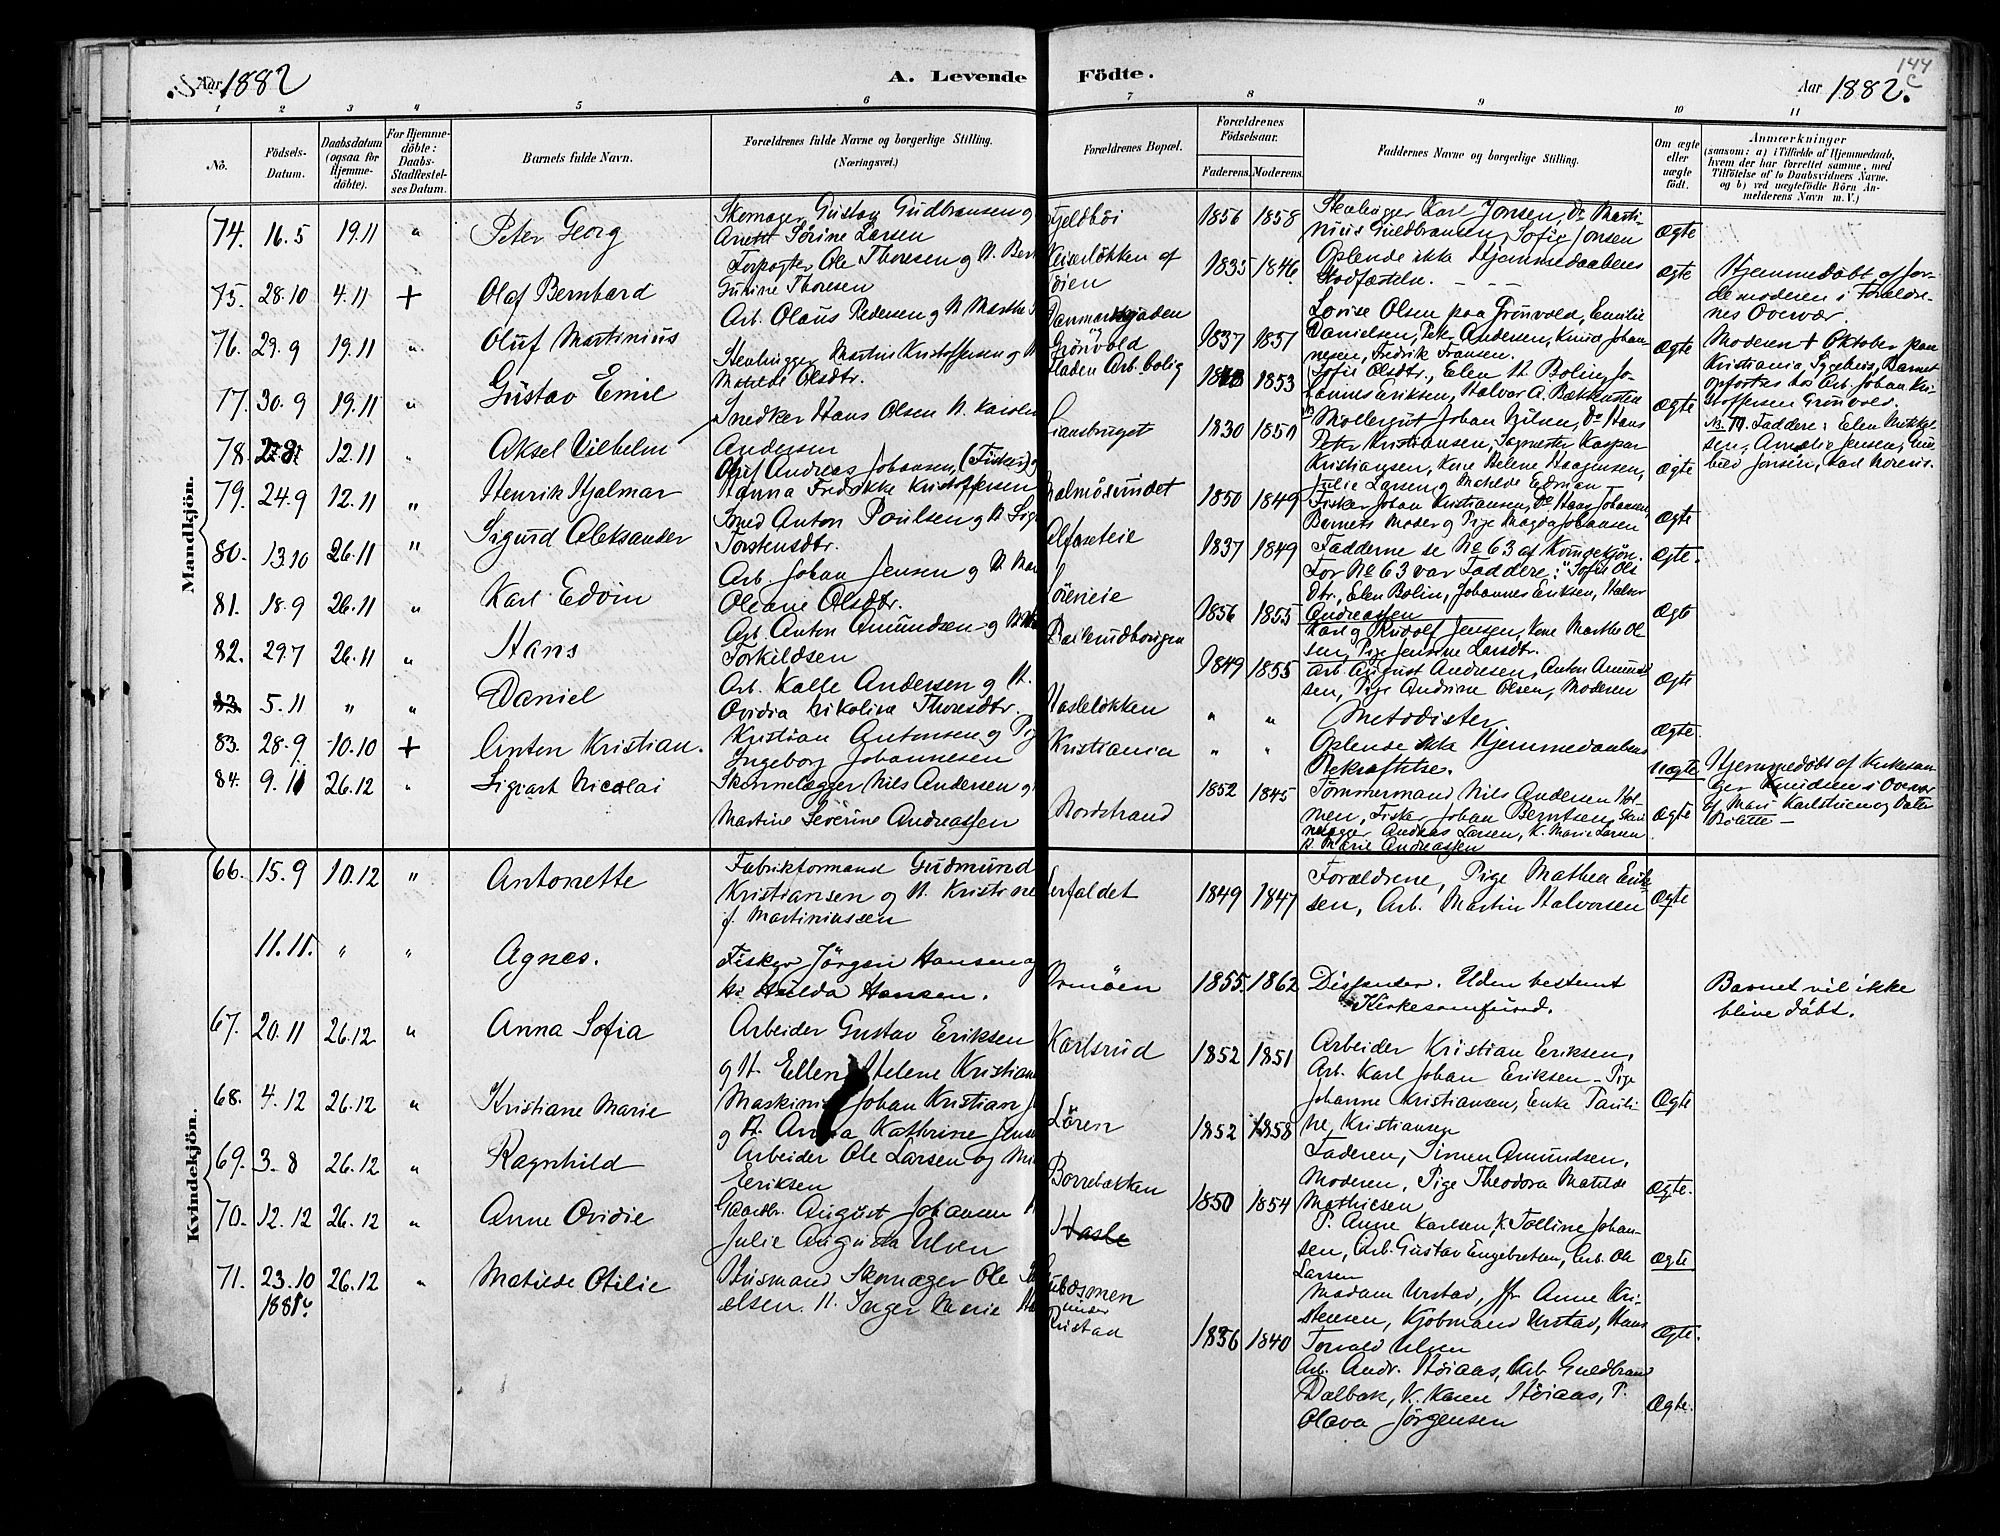 Aar 1882
A. Levende Födte.
Aar 1882.
144
1 2 3 4 5 6 7 8 9 10 11
Nö.
Födsels-Datum.
Daabsdatum (ogsaa for Hjemme-döbte).
For Hjemme-döbte: Daabs-Stadfæstel-ses Datum.
Barnets fulde Navn.
Forældrenes fulde Navne og borgerlige Stilling. (Næringsvei.)
Forældrenes Bopæl.
Forældrenes Födselsaar.
Faderens. Moderens.
Faddernes Navne og borgerlige Stilling.
Om ægte eller uægte födt.
Anmærkninger
(saasom: a) i Tilfælde af Hjemmedaab,
hvem der har forrettet samme, med
Tilföielse af to Daabsvidners Navne.
og b) ved uægtefödte Börn An-
melderens Navn m. V.)
Mandkjön.
74. 16.5 19.11 " Peter Georg
Skomager Gustav Gudbransen og
Sörine Larsen
Fjeldhöi 1856 1858
Skolelærer Karl Jonsen, Do Marti-
nius Guldbransen, Sofie Jonsen
Ægte
75. 28.10 4.11 + Olaf Bernhard
Forpagter Ole Thoresen og H. Ber
Gurine Thoresen
Keiserlökken af
Töien
1835 1846
Oplæste ikke Hjemmedaabens
Stadfæstelse. - - -
Ægte
Hjemmedöbt af Jor-
demoderen i Forældre-
nes Overvær.
76. 29.9 19.11 " Oluf Martinius
Arb. Olaus Pedersen og H. Marthe
Danmarksgaden
Grönvold
1837 1851
Lovise Olsen paa Grönvold, Emilie
Danielsen, Peter Andersen, Knud Johan-
nesen, Fredrik Fransen.
Ægte
Moderen + Oktober paa
Kristiania Sygehus, Barnet
opfostres hos Arb. Johan Kri-
stoffersen Grönvold.
77. 30.9 19.11 " Gustav Emil
Stenhugger Martin Kristoffersen og H
Matilde Olsdtr.
Arb. bolig
1853
Sofie Olsdtr., Elen H. Bolin, Jo-
hannes Eriksen, Halvor A. Bækkensten
Ægte
Faddere: Elen
Amalie Jensen,
Jonsen, Karl
78. 12.11 " Aksel Vilhelm
Snedker Hans Olsen H. Karoline
Andersen
Liansbruget 1830 1850
Möllergut Johan Nilsen, Do Hans
Peter Kristiansen, Kaspar
Kristiansen, Kone Helene Haagensen,
Julie Larsen og Matilde Edman
Ægte
79. 24.9 12.11 " Henrik Hjalmar
Oluf Andreas Johansen, (Fisker) og
Hanna Fredrikke Kristoffersen
Malmösundet 1850 1849
Fisker Johan Kristiansen, Do Hans Johansen,
Barnets Moder og Pige Magda Johansen
Ægte
80. 13.10 26.11 " Sigurd Aleksander
Smed Anton Paulsen og H. Sig
Torstensdtr.
Alfaseteie 1837 1849
Fadderne se No 63 af Kvindekjön.
For No 63 var Faddere: Sofie Ols
Dtr., Elen Bolin, Johannes Eriksen, Halvor
Andreassen
Ægte.
81. 18.9 26.11 " Karl Edvin
Arb. Johan Jensen og H. Mar
Oleane Olsdtr.
Löreneie 1856 1855
Karl og Rudolf Jensen, Kone Marthe Ol-
sen, Pige Jensine Larsdtr.
Ægte
82. 29.7 26.11 " Hans
Arb. Anton Amundsen og H.
Torkildsen
1849 1855
Arb. August Andresen, Anton Amund-
sen, Pige Andrine Olsen, Moderen
Ægte
83. 5.11 " " Daniel
Arb. Kalle Andersen og H.
Ovidia Nikolina Thoresdtr.
Haslelökken " "
Metodister
Ægte.
83. 28.9 10.10 + Anton Kristian.
Kristian Antonsen og Pige
Ingeborg Johannesen
Kristiania " "
Oplæste ikke Hjemmedaabens
Bekræftelse.
Uægte
Hjemmedöbt af Kirkesan-
ger Knudsen i Overvær
af Mari Karlstuen og Datter
Bolette -
84. 9.11 26.12 " Sigvart Nicolai
Skinnelægger Nils Andersen og
Martine Severine Andreassen
Nordstrand 1852 1845
Tömmermand Nils Andersen Hol-
men, Fisker Johan Berntsen, Skin-
nelægger Andreas Larsen, K. Marie Larsen
P. Marie Andreassen
Ægte
Kvindekjön.
66. 15.9 10.12 " Antonette
Fabrikformand Gudmund
Kristiansen og H. Kristine
f. Martiniussen
1849 1847
Forældrene, Pige Mathea Erik-
sen, Arb. Martin Halvorsen
Ægte
11.11. " " Agnes.
Fisker Jörgen Hansen og
H. Hulda Hansen.
Ormöen 1855. 1862
Dissenter. Uden bestemt
Kirkesamfund.
Barnet vil ikke
blive döbt.
67. 20.11 26.12 " Anna Sofia
Arbeider Gustav Eriksen
og H. Ellen Helene Kristian
Karlsrud 1852 1851
Arbeider Kristian Eriksen,
Arb. Karl Johan Eriksen - Pige
Johanne Kristiansen, Enke Pauli-
ne Kristiansen
Ægte
68. 4.12 26.12 " Kristiane Marie
Maskinist Johan Kristian J
og H. Anna Kathrine Jens
Lören 1852 1858
Faderen, Simen Amundsen,
Moderen, Pige Theodora Matilde
Mathiesen
Ægte.
69. 3.8 26.12 " Ragnhild
Arbeider Ole Larsen og M
Eriksen
Borrebækken 1850 1854
P. Anne Karlsen, K. Tolline Johan-
sen, Arb. Gustav Engebretsen, Arb. Ole
Larsen
Ægte
70. 12.12 26.12 " Anne Ovidie
Gaardbr. August Johansen H
Julie Augusta Ulven
Hasle
Madam Urstad, Jfr Anne Kri-
stensen, Kjöbmand Urstad, Hans
Torvald Ulven
Ægte.
71. 23.10 1881 26.12 " Matilde Otilie
Husmand Skomager Ole
elsen H. Inger Marie
under
Rustad
1836 1840
Arb. Andr. Höiaas, Arb. Guldbrand
Dælbak, K. Karen Höiaas, P.
Olava Jörgensen
Ægte.